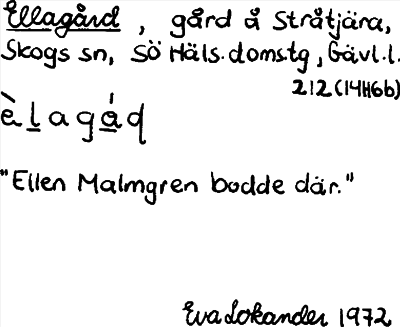 Ellagård, gård å Stråtjära,
Skogs sn, SÖ Häls. domstg, Gävl. l.
212 (14H6b)
èlagád
"Ellen Malmgren bodde där."
Eva Lokander 1972